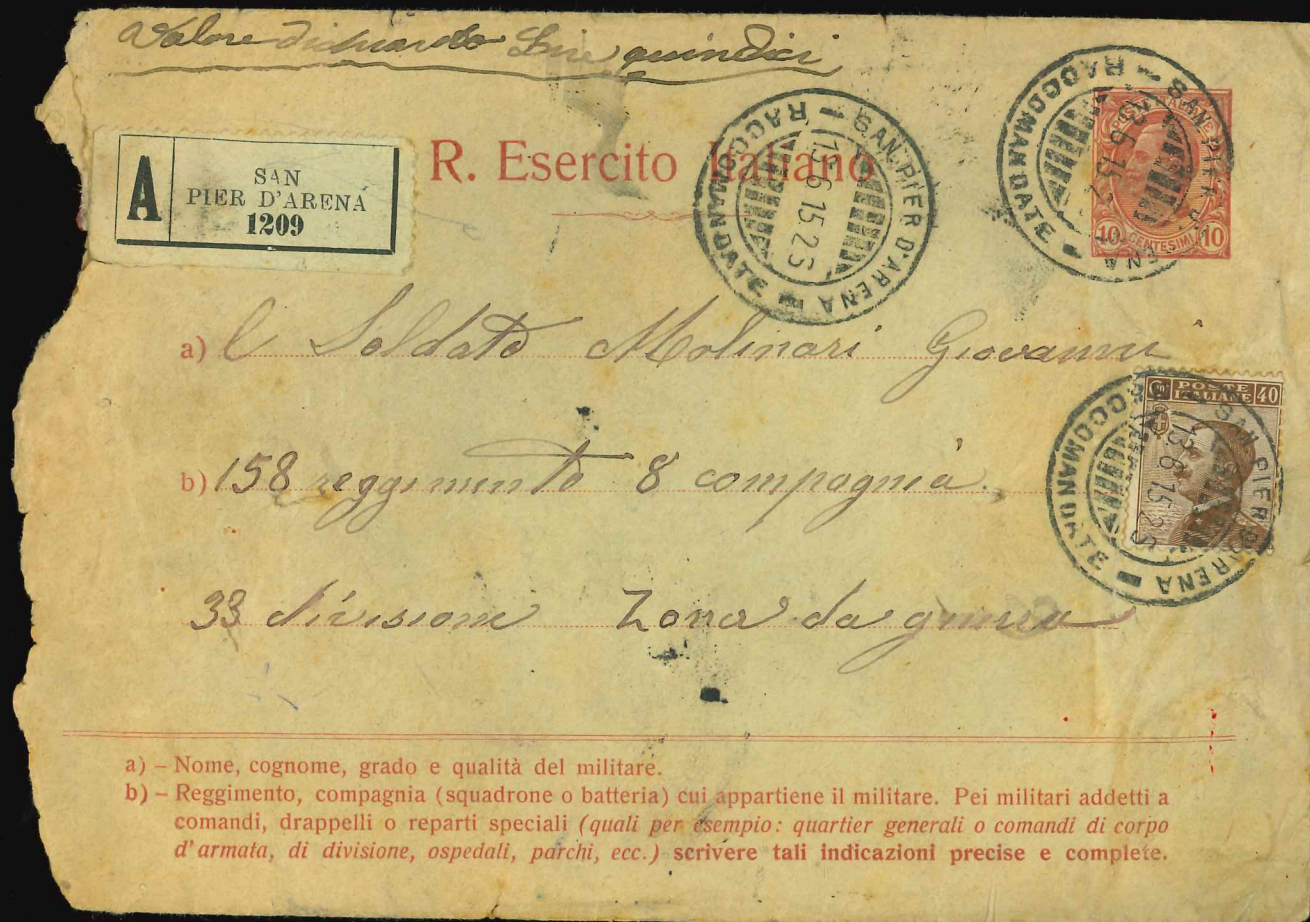 Valore dichiarato Lire quindici
A
SAN
PIER D'ARENA
1209
R. Esercito Italiano
SAN PIER D'ARENA
13 6 15 23
RACCOMANDATE
POSTE ITALIANE
10 CENTESIMI 10
SAN PIER D'ARENA
RACCOMANDATE
a) l Soldato Molinari Giovanni
POSTE
ITALIANE
40
SAN PIER D'ARENA
13 6 15 23
RACCOMANDATE
b) 158 reggimento 8 compagnia.
33 divisione Zona da guerra
a) – Nome, cognome, grado e qualità del militare.
b) – Reggimento, compagnia (squadrone o batteria) cui appartiene il militare. Pei militari addetti a
comandi, drappelli o reparti speciali (quali per esempio: quartier generali o comandi di corpo
d'armata, di divisione, ospedali, parchi, ecc.) scrivere tali indicazioni precise e complete.